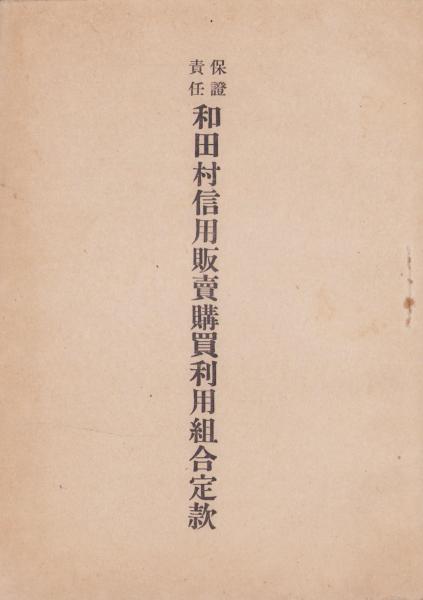 保證
責任
和田村信用販賣購買利用組合定款